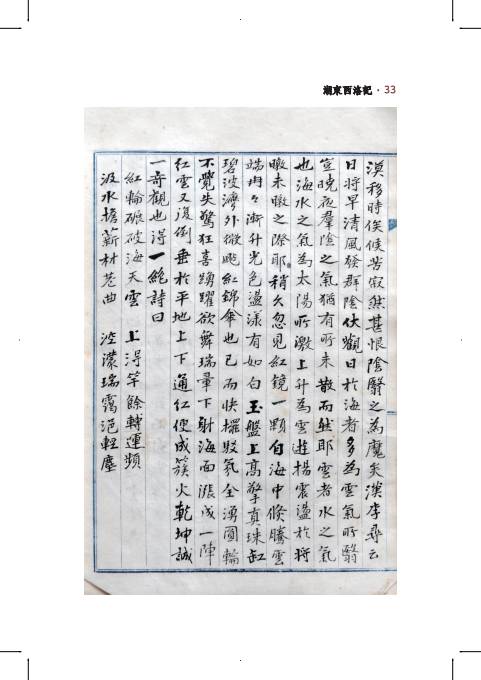 湖東西洛記 · 33
漠移時俟候苦寂然甚恨陰翳之為魔矣漢李尋云
日將旱清風發群陰伏觀日於海者多為雲氣所翳
豈曉夜群陰之氣猶有所未散而然耶雲者水之氣
也海水之氣為太陽所激上升為雲遊揚震盪於將
暾未暾之際耶稍久忽見紅鏡一顆自海中倏騰雲
端冉々漸升光色盪漾有如白玉盤上高擎真珠缸
碧波濤外微颺紅錦傘也已而快擺駁氛全湧圓輪
不覺失驚狂喜踴躍欲舞瑞暈下射海面漲成一陣
紅雲又復倒垂於平地上下通紅便成簇火乾坤誠
一奇觀也得一絶詩曰
紅輪碾破海天雲 上得竿餘轉運頻
汲水擔薪村巷曲 涳濛瑞靄浥輕塵